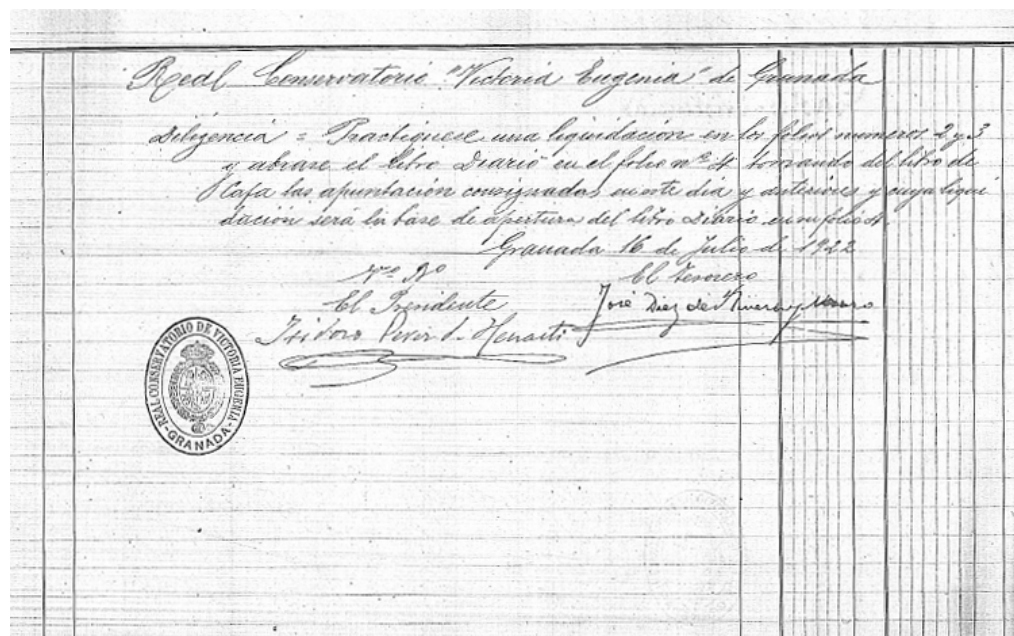 Real Conservatorio "Victoria Eugenia" de Granada
Diligencia = Practiquese una liquidación en los folios numeros 2 y 3
y abrase el libro Diario en el folio nº 4 tomando del libro de
Caja las apuntación consignadas en este dia y anteriores y cuya liqui
dación sera la base de apertura del libro Diario en su folio 4.
Granada 16 de Julio de 1922
Vº Bº
El Tesorero
El Presidente
José Diez de Rivera y
Isidoro Perez de Herrasti
REAL CONSERVATORIO DE VICTORIA EUGENIA
-GRANADA-